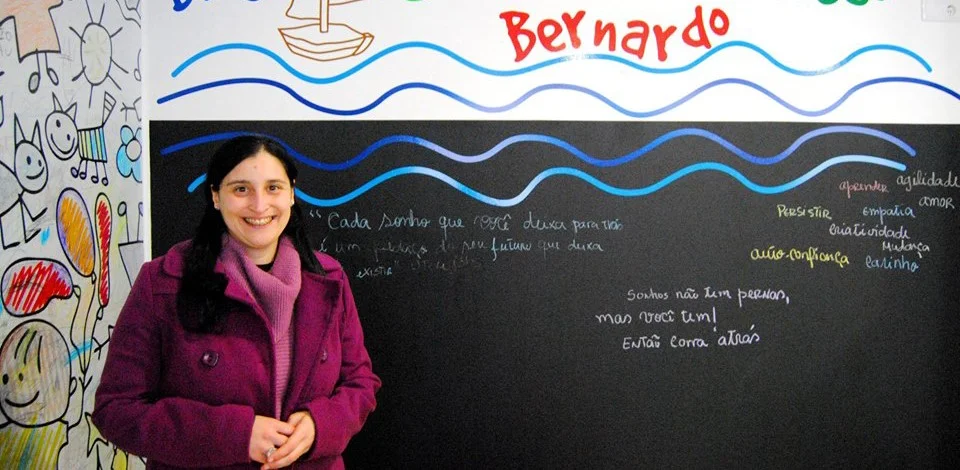 Bernardo
"Cada sonho que você deixa para trás
é um pedaço do seu futuro que deixa
existir"
aprender agilidade
amor
PERSISTIR empatia
criatividade
MUDANÇA
auto-confiança carinho
SONHOS NÃO TEM PERNAS,
mas você tem!
ENTÃO corra atrás